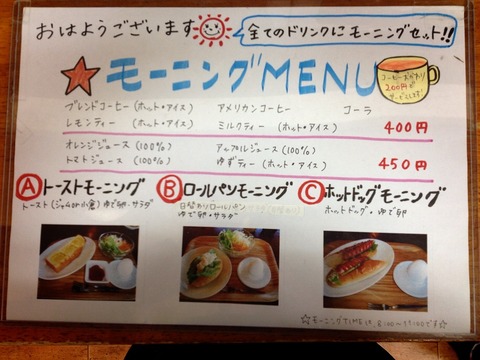 おはようございます
全てのドリンクにモーニングセット!!
★モーニングMENU
コーヒーおかわり
200円が
サービスします!
ブレンドコーヒー(ホット・アイス) アメリカンコーヒー コーラ
レモンティー (ホット・アイス) ミルクティー (ホット・アイス) 400円
オレンジジュース (100%) アップルジュース (100%)
トマトジュース (100%) ゆずティー (ホット・アイス) 450円
Ⓐトーストモーニング
トースト(ジャムor小倉)ゆで卵・サラダ
Ⓑロールパンモーニング
日替わりロールパン
ゆで卵・サラダ
Ⓒホットドッグモーニング
ホットドッグ・ゆで卵
☆モーニングTIMEは、8:00〜11:00です☆